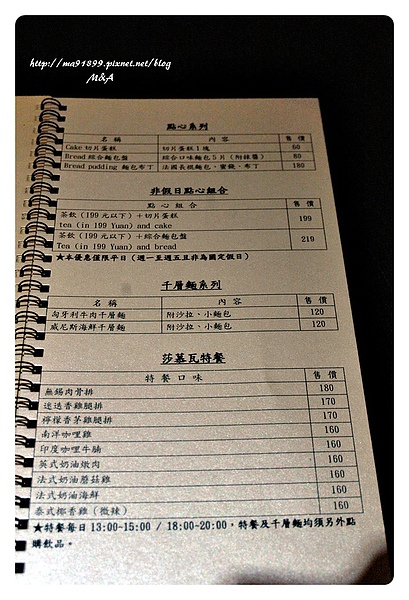 http://ma91899.pixnet.net/blog
M&A
點心系列
名稱 內容 售價
Cake 切片蛋糕 切片蛋糕1塊 60
Bread 綜合麵包盤 綜合口味麵包5片(附抹醬) 80
Bread pudding 麵包布丁 法國長棍麵包、蜜餞、布丁 180
非假日點心組合
點心組合 售價
茶飲(199元以下)+切片蛋糕 199
tea (in 199 Yuan) and cake
茶飲(199元以下)+綜合麵包盤 219
Tea (in 199 Yuan) and bread
★本優惠僅限平日(週一至週五且非為國定假日)
千層麵系列
名稱 內容 售價
匈牙利牛肉千層麵 附沙拉、小麵包 120
威尼斯海鮮千層麵 附沙拉、小麵包 120
莎慕瓦特餐
特餐口味 售價
無錫肉骨排 180
迷迭香雞腿排 170
檸檬香茅雞腿排 170
南洋咖哩雞 160
印度咖哩牛腩 160
英式奶油燉肉 160
法式奶油蘑菇雞 160
法式奶油海鮮 160
泰式椰香雞(微辣) 160
★特餐每日13:00~15:00 / 18:00~20:00,特餐及千層麵均須另外點
購飲品。